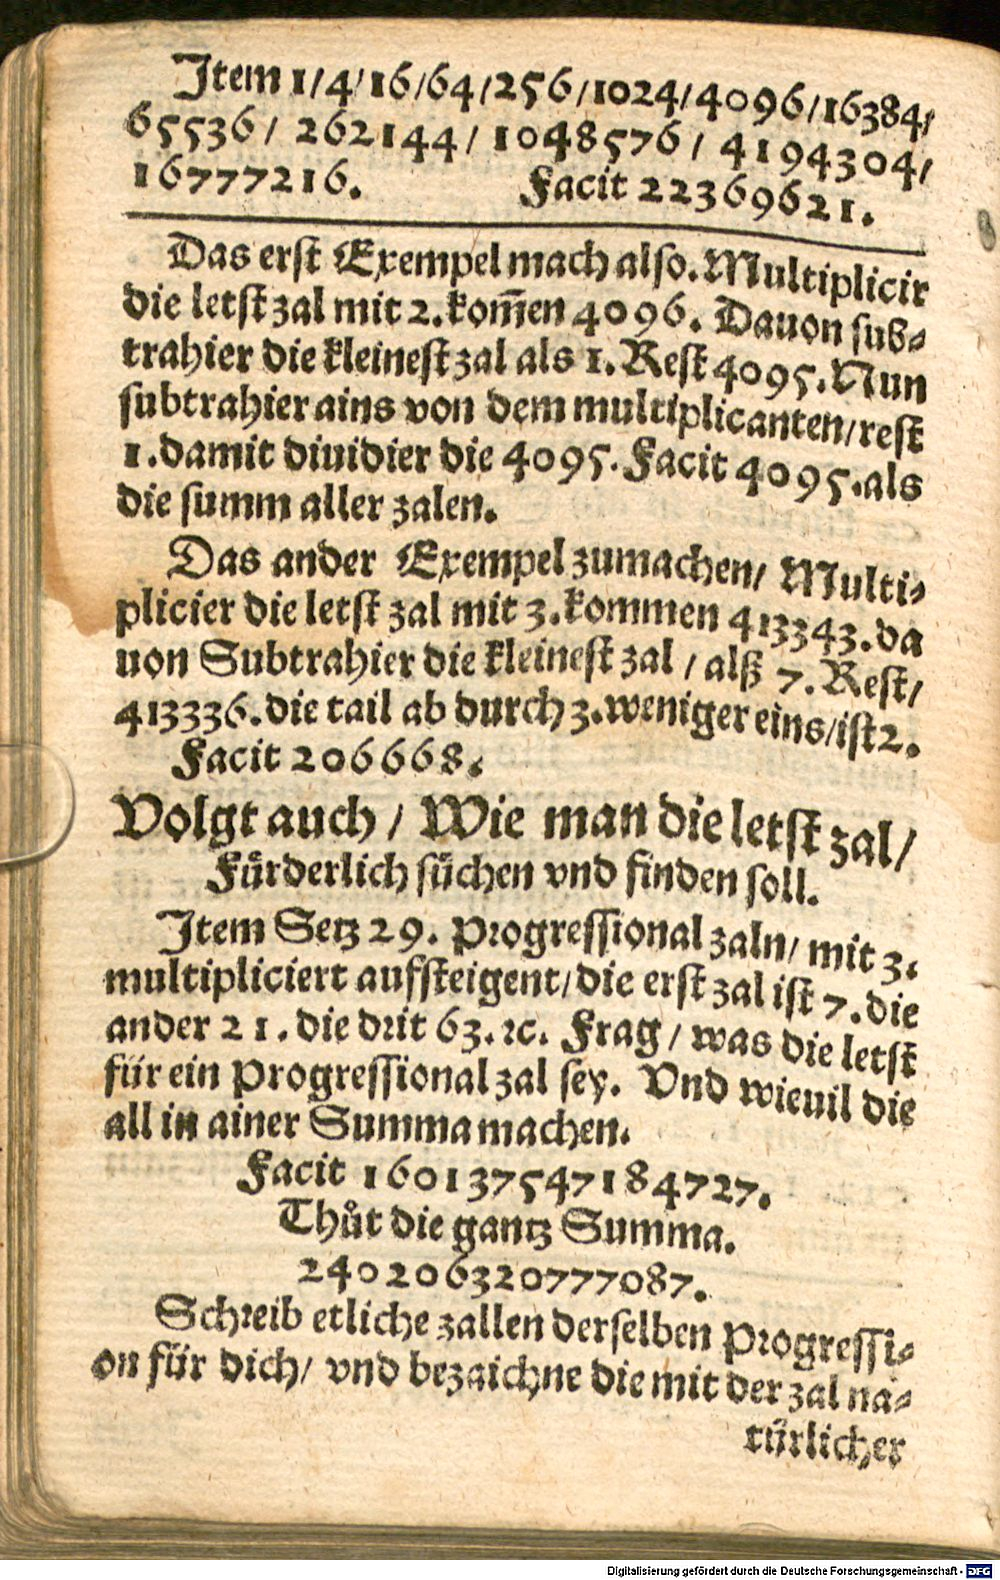 Item 1/4/16/64/256/1024/4096/16384/
65536/ 262144/ 1048576/ 4194304/
16777216. Facit 22369621.
Das erst Exempel mach also. Multiplicir
die letst zal mit 2. kom̅en 4096. Dauon sub⸗
trahier die kleinest zal als 1. Rest 4095. Nun
subtrahier ains von dem multiplicanten/rest
1. damit diuidier die 4095. Facit 4095. als
die summ aller zalen.
Das ander Exempel zumachen/ Multi⸗
plicier die letst zal mit 3. kommen 413343. da
uon Subtrahier die kleinest zal / alß 7. Rest/
413336. die tail ab durch 3. weniger eins/ist 2.
Facit 206668.
Volgt auch / Wie man die letst zal/
Fuͤrderlich suͤchen vnd finden soll.
Item Setz 29. Progressional zaln/ mit 3.
multipliciert auffsteigent/die erst zal ist 7. die
ander 21. die drit 63. ꝛc. Frag / was die letst
für ein Progressional zal sey. Vnd wieuil die
all in ainer Summa machen.
Facit 160137547184727.
Thůt die gantz Summa.
240206320777087.
Schreib etliche zallen derselben Progressi⸗
on für dich/ vnd bezaichne die mit der zal na⸗
türlicher
Digitalisierung gefördert durch die Deutsche Forschungsgemeinschaft - DFG